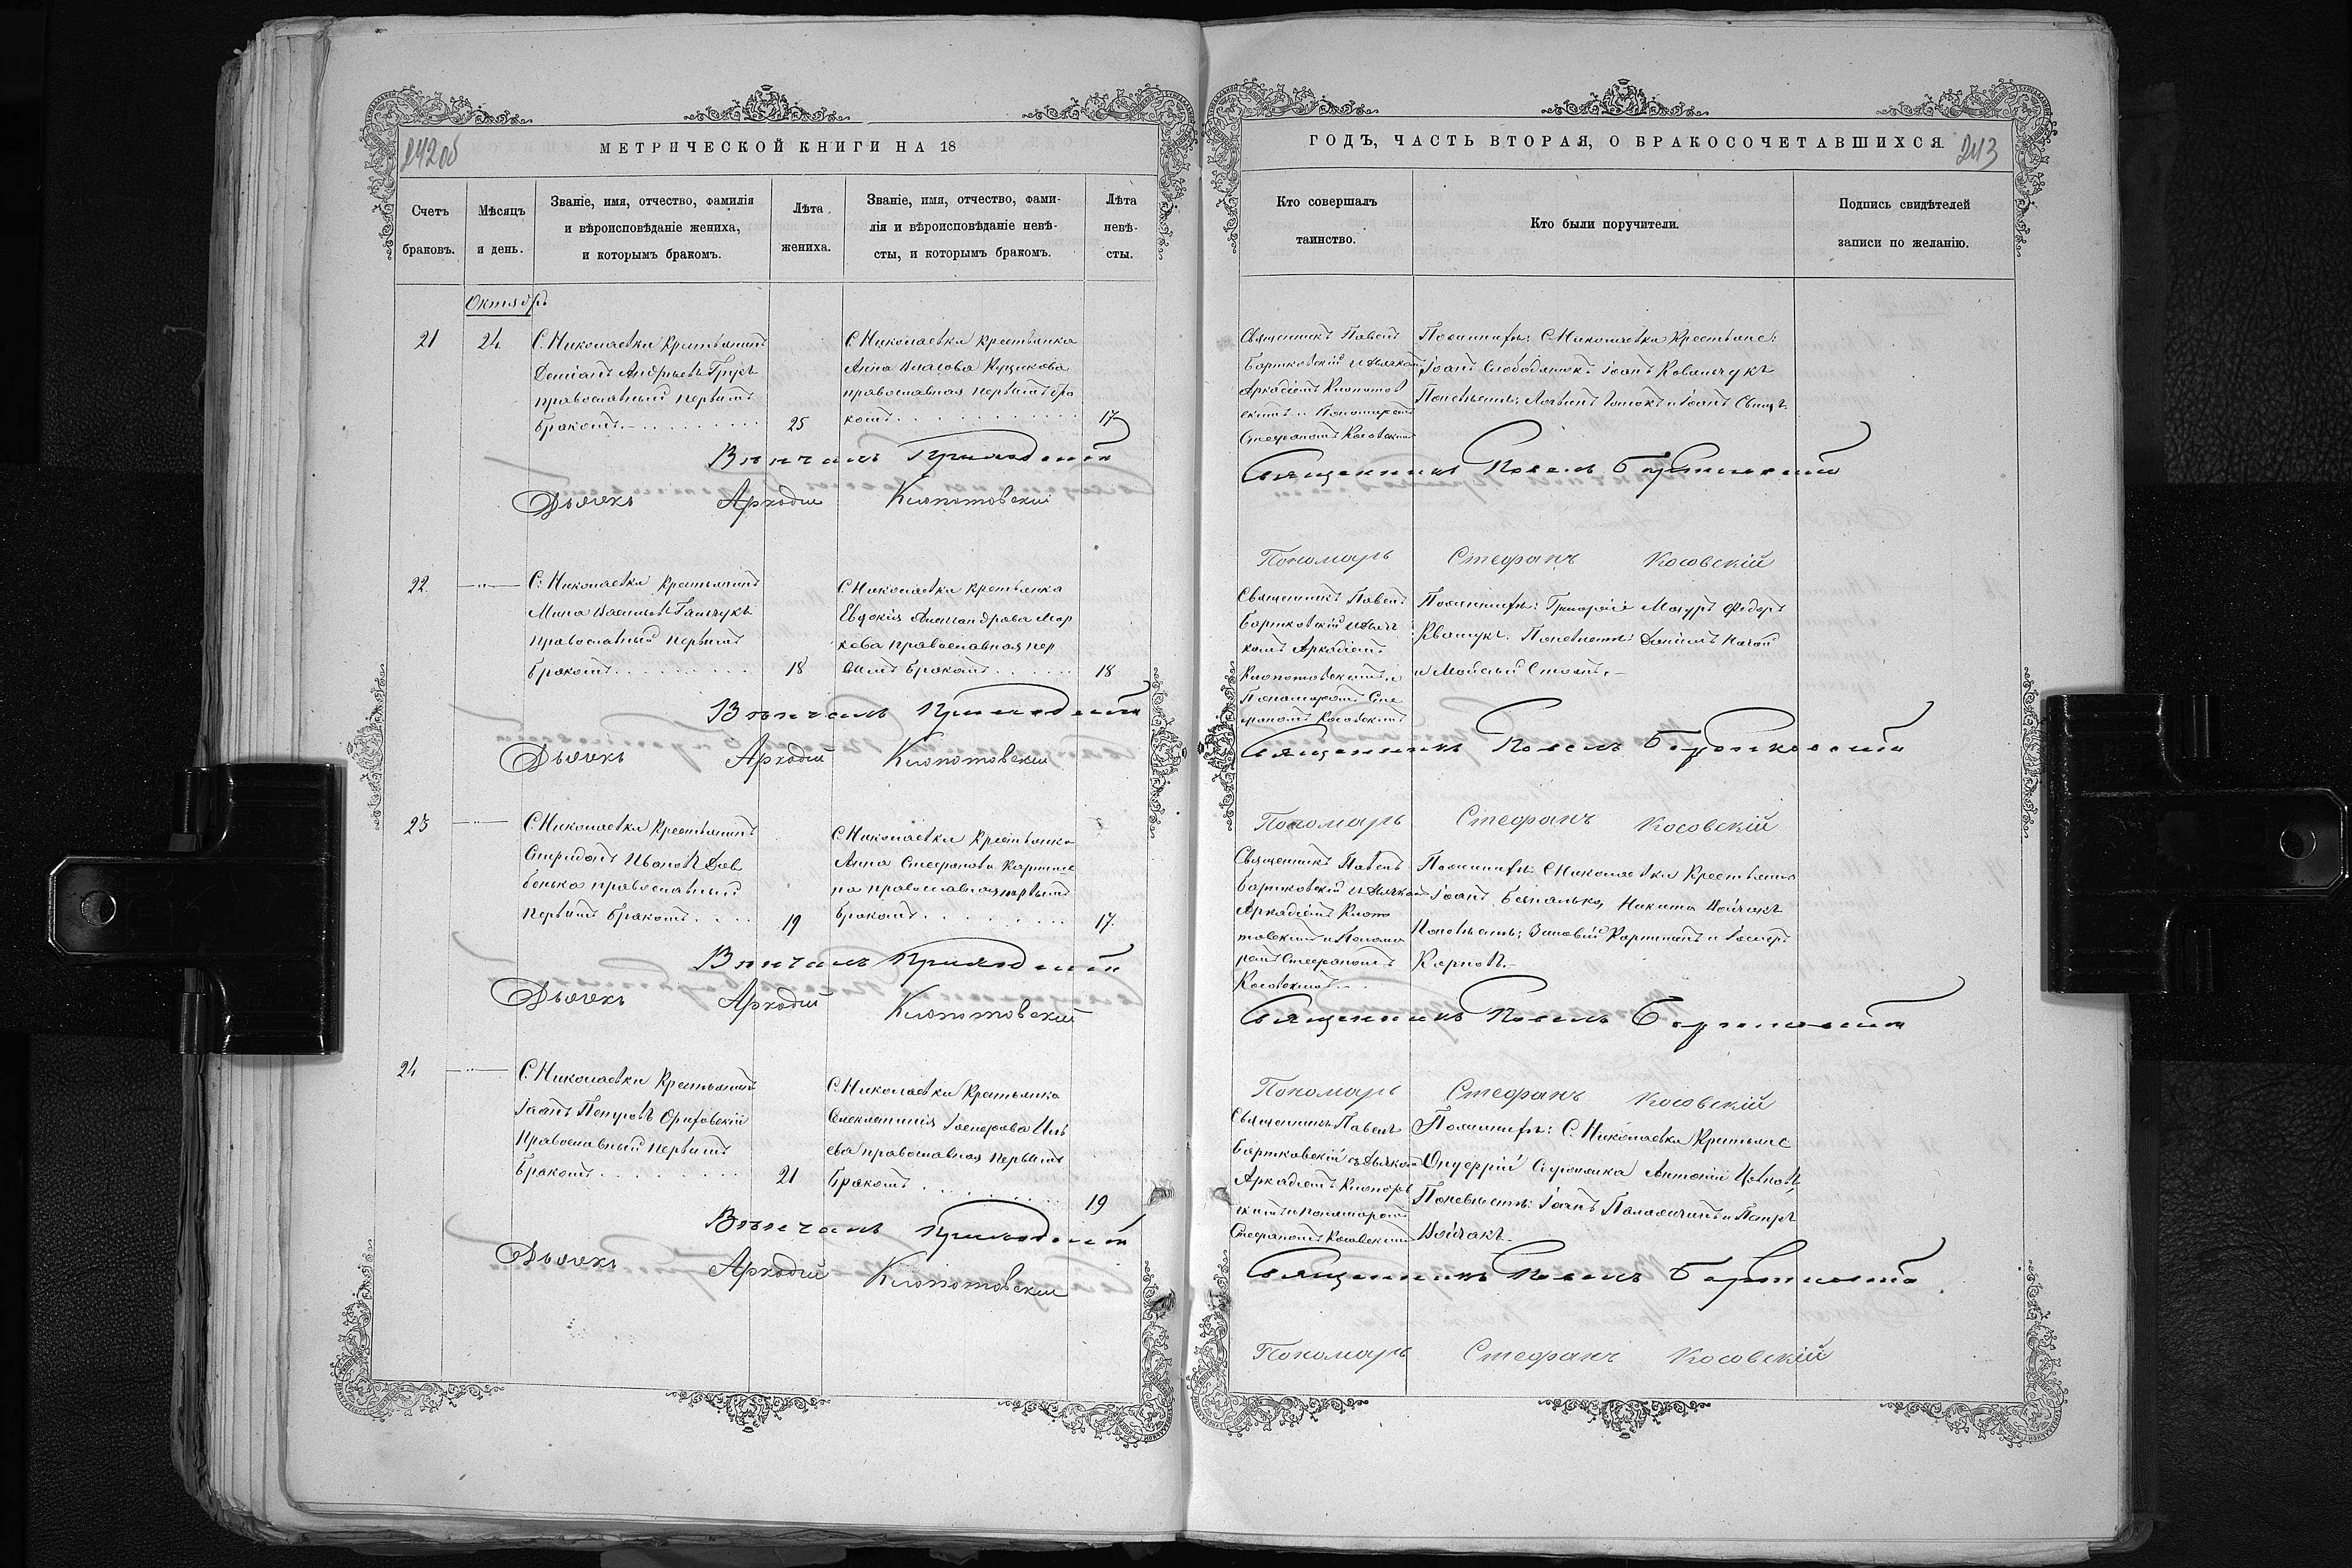 242об
МЕТРИЧЕСКОЙ КНИГИ НА 18
Счетъ браковъ.
Мѣсяцъ и день.
Званіе, имя, отчество, фамилія
и вѣроисповѣданіе жениха,
и которымъ бракомъ.
Лѣта жениха.
Званіе, имя, отчество, фами-
лія и вѣроисповѣданіе невѣ-
сты, и которымъ бракомъ.
Лѣта невѣ-
сты.
Октябр.
21
24
С. Николаевки крестьянинъ
Демианъ Андреевъ
православный первымъ
бракомъ
25
С. Николаевки крестьянка
Анна Власова
православная первымъ бра
комъ
17
Вѣнчалъ Приходскій
Дьячекъ Аркадій Клопотовскій
22
С. Николаевки крестьянинъ
Мина Васильевъ
православный первымъ
бракомъ
18
С. Николаевки крестьянка
Евдокія Александрова Мар
кова православная пер
вымъ бракомъ
18
Вѣнчалъ Приходскій
Дьячекъ Аркадій Клопотовскій
23
С. Николаевки крестьянинъ
Спиридонъ Ивановъ Дов
бенько православный
первымъ бракомъ
19
С. Николаевки крестьянка
Анна Стефанова
на православная первымъ
бракомъ
17.
Вѣнчалъ Приходскій
Дьячекъ Аркадій Клопотовскій
24
С. Николаевки крестьянинъ
Іоанъ Петровъ
православный первымъ
бракомъ
21
С. Николаевки крестьянка
Іосифова Иль
ева православная первымъ
бракомъ
19
Вѣнчалъ Приходскій
Дьячекъ Аркадій Клопотовскій
ГОДЪ, ЧАСТЬ ВТОРАЯ, О БРАКОСОЧЕТАВШИХСЯ.
243
Кто совершалъ
таинство.
Кто были поручители.
Подпись свидѣтелей
записи по желанію.
Священникъ Павелъ
Бартковскій и дьячкомъ
Аркадіемъ Клопотов
скимъ и Пономаремъ
Стефаномъ Косовскимъ
По женихѣ: С. Николаевки крестьяне:
Іоанъ Слободянюкъ Іоанъ Ковальчукъ
По невѣстѣ: и Іоанъ
Священникъ Павелъ Бартковскій
Пономарь Стефанъ Косовскій
Священникъ Павелъ
Бартковскій и дьяч
комъ Аркадіемъ
Клопотовскимъ и
Пономаремъ Сте
фаномъ Косовскимъ
По женихѣ: Григорій Мазуръ Федоръ
Квашукъ. По невѣстѣ: Даніилъ
и Мойсей
Священникъ Павелъ Бартковскій
Пономарь Стефанъ Косовскій
Священникъ Павелъ
Бартковскій и дьячкомъ
Аркадіемъ Клопо
товскимъ и Понома
ремъ Стефаномъ
Косовскимъ
По женихѣ: С. Николаевки крестьяне
Іоанъ Безпалько, Никита Войчакъ
По невѣстѣ: Зиновій и Іосифъ
Карповъ.
Священникъ Павелъ Бартковскій
Пономарь Стефанъ Косовскій
Священникъ Павелъ
Бартковскій съ дьячкомъ
Аркадіемъ Клопотов
скимъ и пономаремъ
Стефаномъ Косовскимъ
По женихѣ: С. Николаевки крестьяне
Онуфрій Антоній
По невѣстѣ: Іоанъ и Петръ
Войчакъ.
Священникъ Павелъ Бартковскій
Пономарь Стефанъ Косовскій